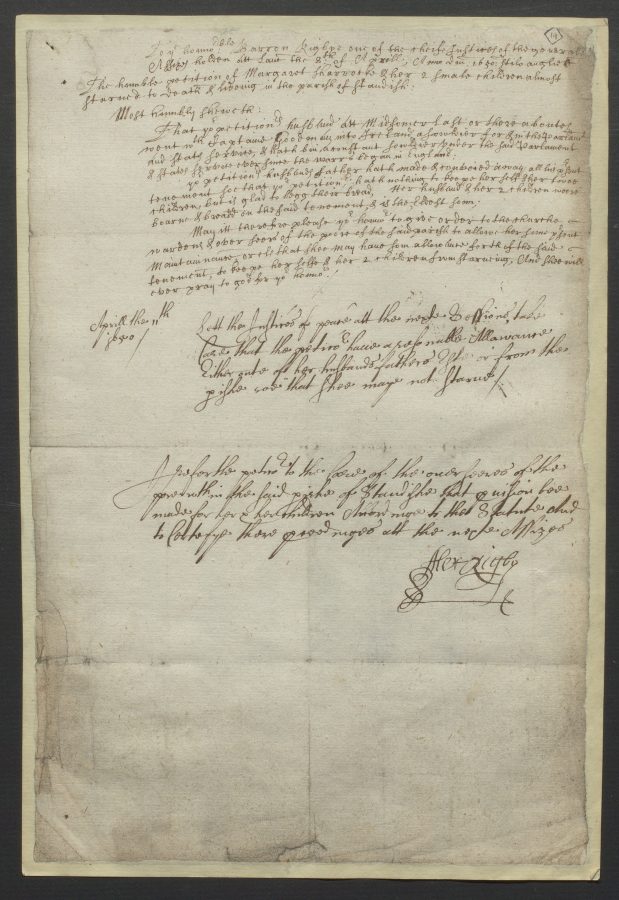 14
To ye honno:ble Barron Rigbye one of the cheife Justices of the generall
Assizes holden att Lanc the 8th of Aprill; Anno dni: 1650 stilo angliae
The humble petition of Margaret Sharrocke & her 2 smale children almost
starued to death & liueing in the parish of Standish:
Most humbly sheweth:
That yor petitionrs husband att Midsomer last or there aboutes
went wth Captaine into Ireland a showldier for & in the Parliamt
and States service, & hath bin a constant showldier vnder the said Parlement
& States service ever since the warrs began in England.
yor petitionrs husbands father hath made & convaied away all his psent
tenement soe that yor petitionr hath nothing to keepe her selfe & her twoe
children, but is glad to begg their bread. Her husband & her 2 children weere
bourne & breadd on the said tenement, & is the eldest sonn.
May itt therefore please yor honnor to give order to the Church
wardens & over seers of the poore of the said parish to allowe her some psent
Maintainance, or els that shee may have som allowance forth of the said
tenement, to keepe her selfe & her 2 children from starueing, And shee will
ever pray to god for yor honnor!
Aprill the 11th
1650
Lett the Justices of peace att the nexte Sessions take
Care that the peticor have a reasonable Allowance
Either oute of her husbands fathers Este or from the
pishe soe that shee maye not starue
I refer the peticor to the Care of the over seeres of the
poore wthin the said pishe of Standishe that pvision bee
made for her & her Children Accordinge to the Statute And
to Certefye there pceedinges att the nexte Assizes
Alex: Rigby